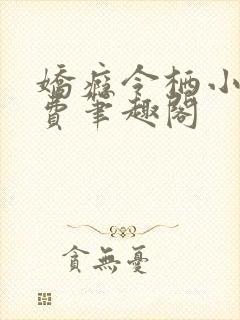 嬌癡令栖小
費筆趣閣
貪無憂